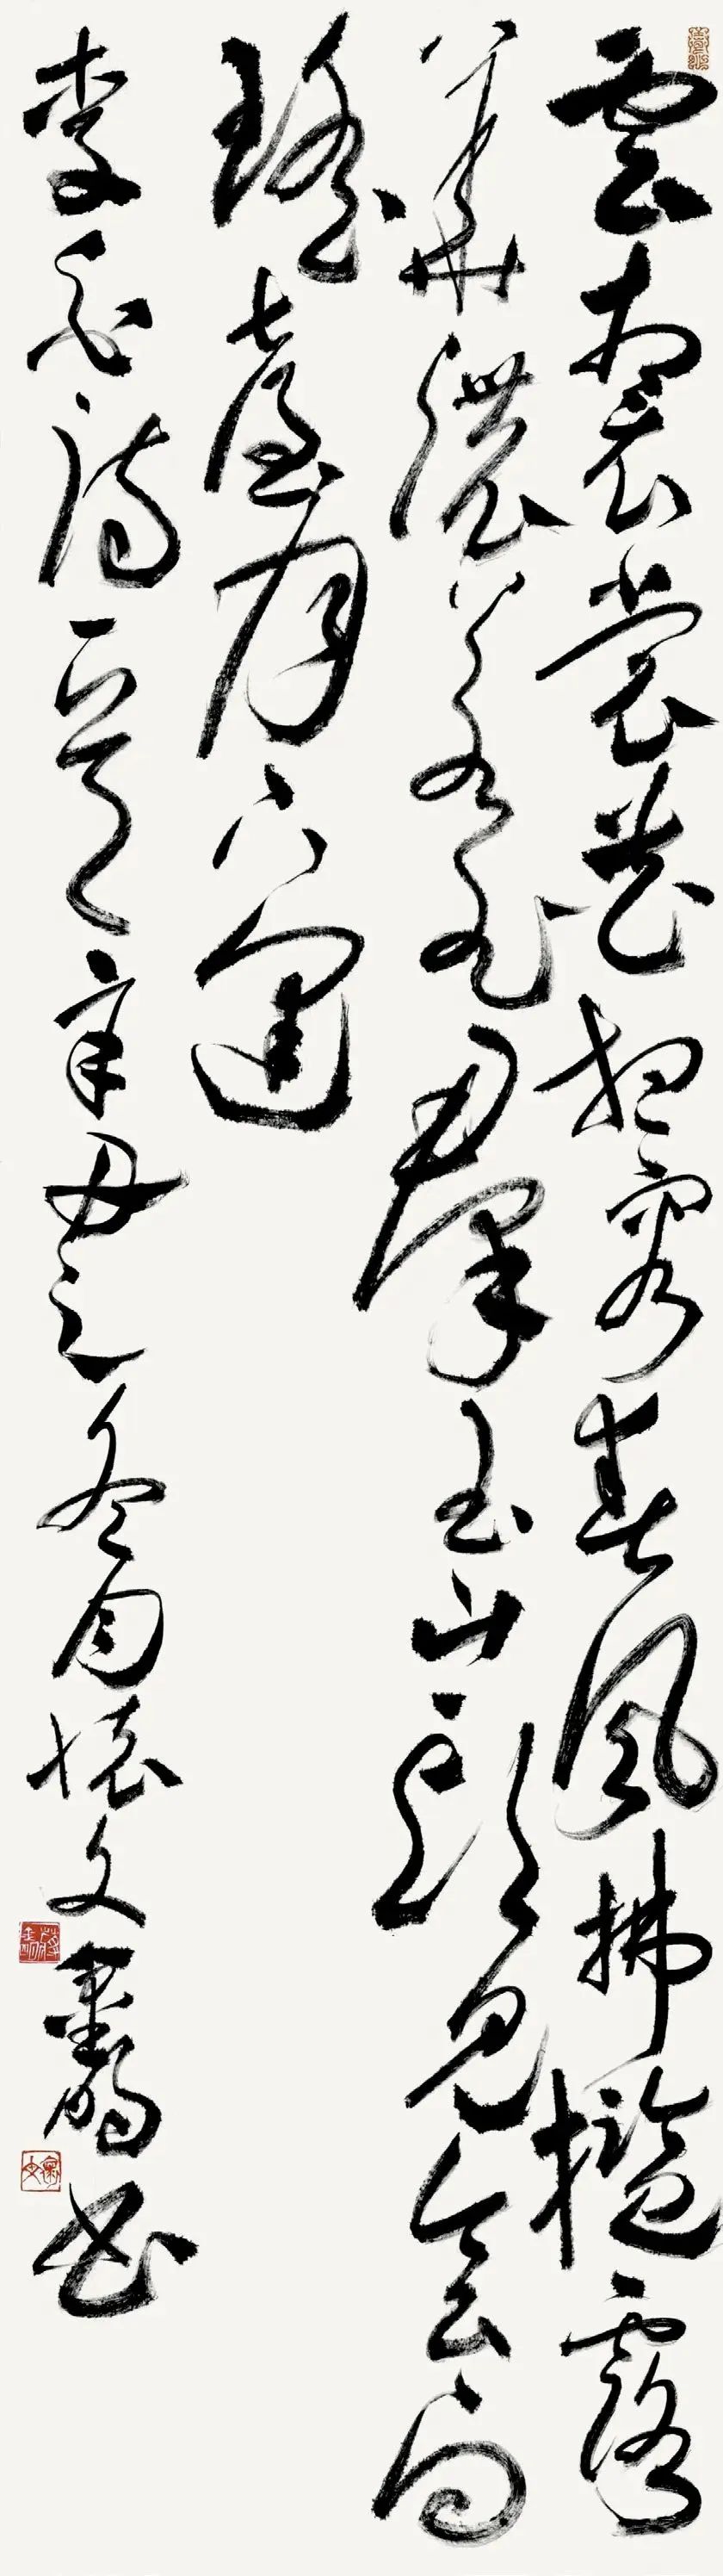 雲想衣裳花想容春風拂檻露
華濃若非羣玉山頭見會向
瑤臺月下逢
李白詩一首辛丑之冬月懷文書